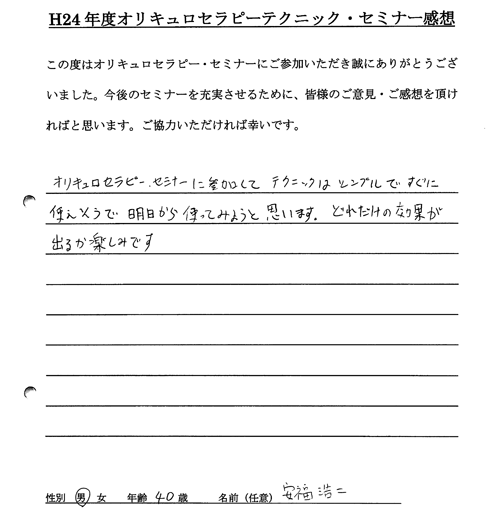 H24年度オリキュロセラピーテクニック・セミナー感想
この度はオリキュロセラピー・セミナーにご参加いただき誠にありがとうござ
いました。今後のセミナーを充実させるために、皆様のご意見・ご感想を頂け
ればと思います。ご協力いただければ幸いです。
オリキュロセラピー・セミナーに参加して テクニックは シンプルで すぐに
使えそうで 明日から 使ってみようと 思います. どれだけの 効果が
出るか楽しみです
性別 男 女 年齢 40 歳 名前（任意） 安福 浩二